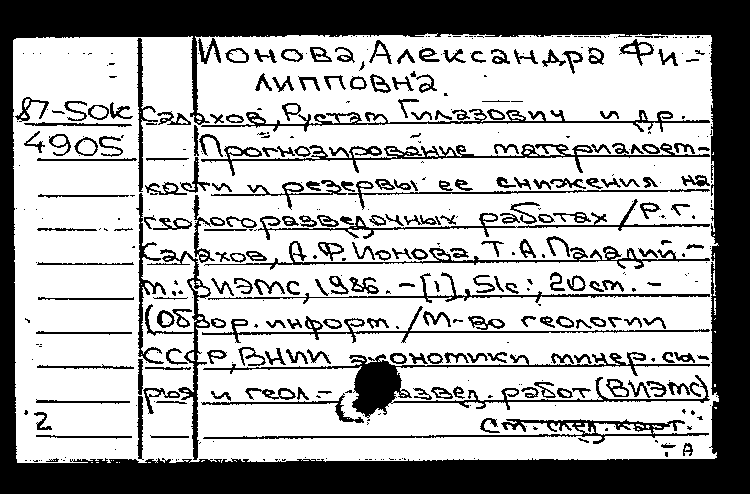 Ионова, Александра Фи-
липповна.
87-50к Салахов, Рустам Гилазович и др.
4905 Прогнозирование материалоем-
кости и резервы ее снижения на
геологоразведочных работах / Р. Г.
Салахов, А. Ф. Ионова, Т. А. Паладий. -
м.: ВИЭМС, 1986. - [1], 51с.; 20 см. -
(Обзор. информ. / М-во геологии
СССР, ВНИИ экономики минер. сы-
рья и геол.- развед. работ (ВИЭМС)
2 См. след. карт.